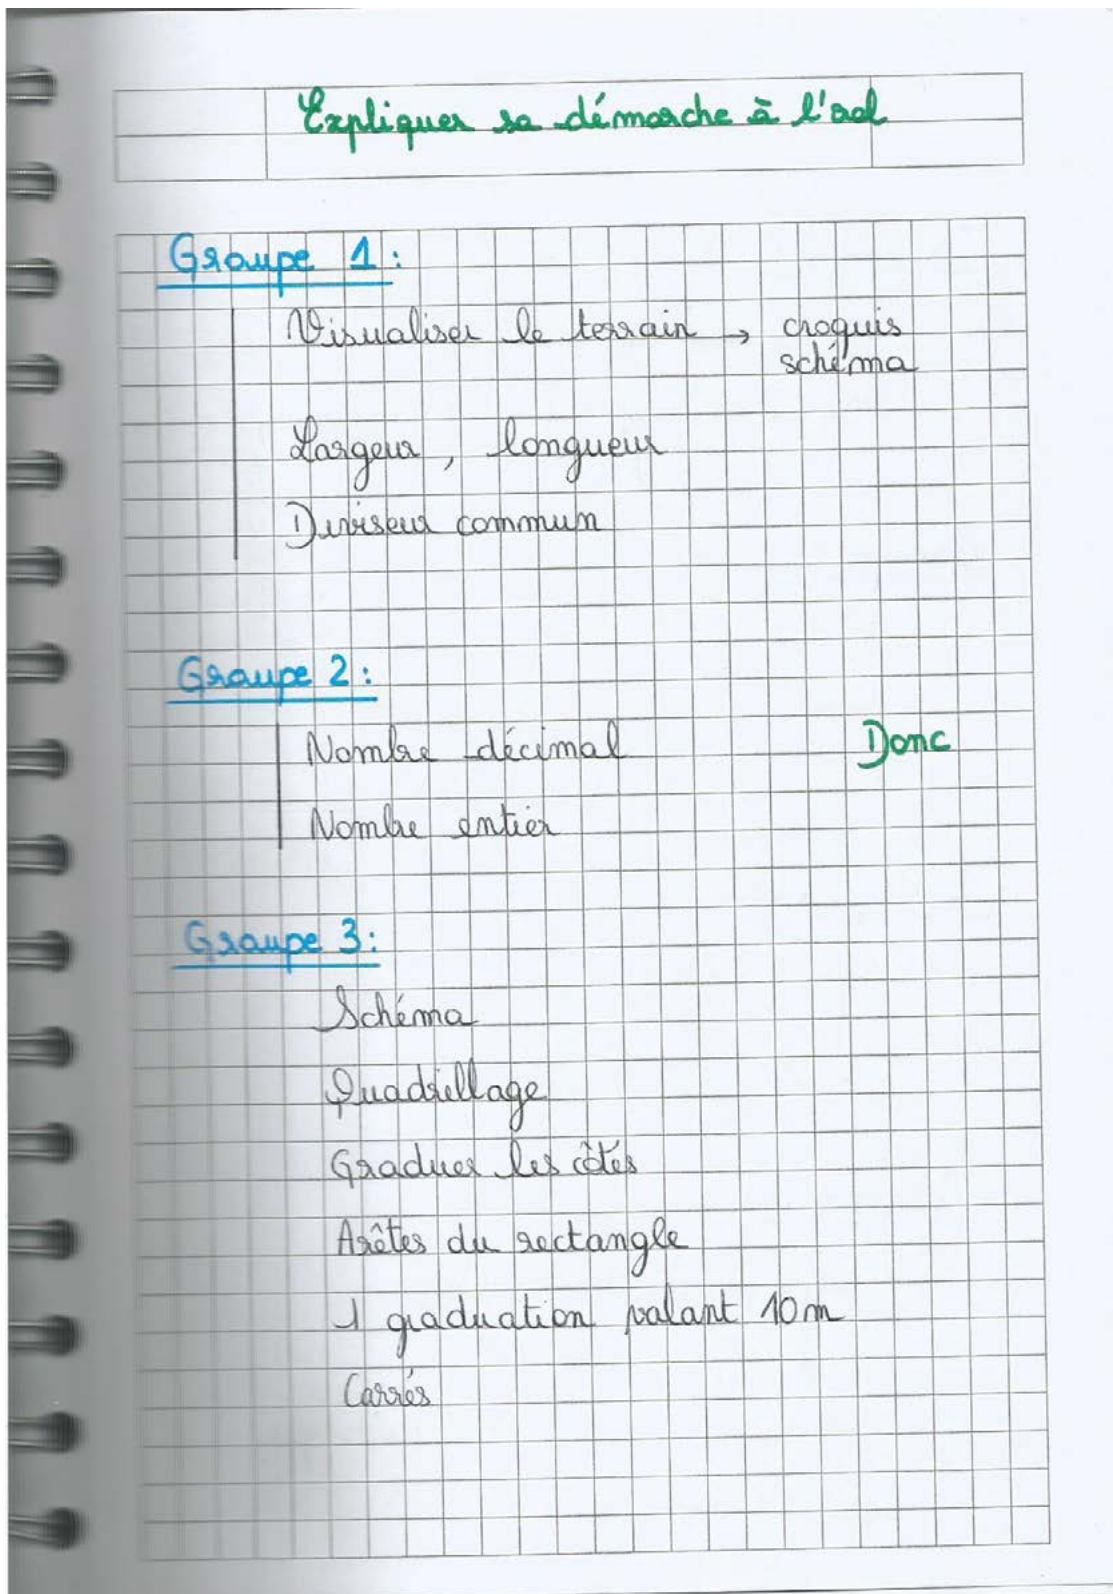 Expliquer sa démarche à l'oral
Groupe 1 :
Visualiser le terrain → croquis
schéma
Largeur, longueur
Diviseur commun
Groupe 2 :
Nombre décimal Donc
Nombre entier
Groupe 3 :
Schéma
Quadrillage
Graduer les côtés
Arêtes du rectangle
1 graduation valant 10m
Carrés